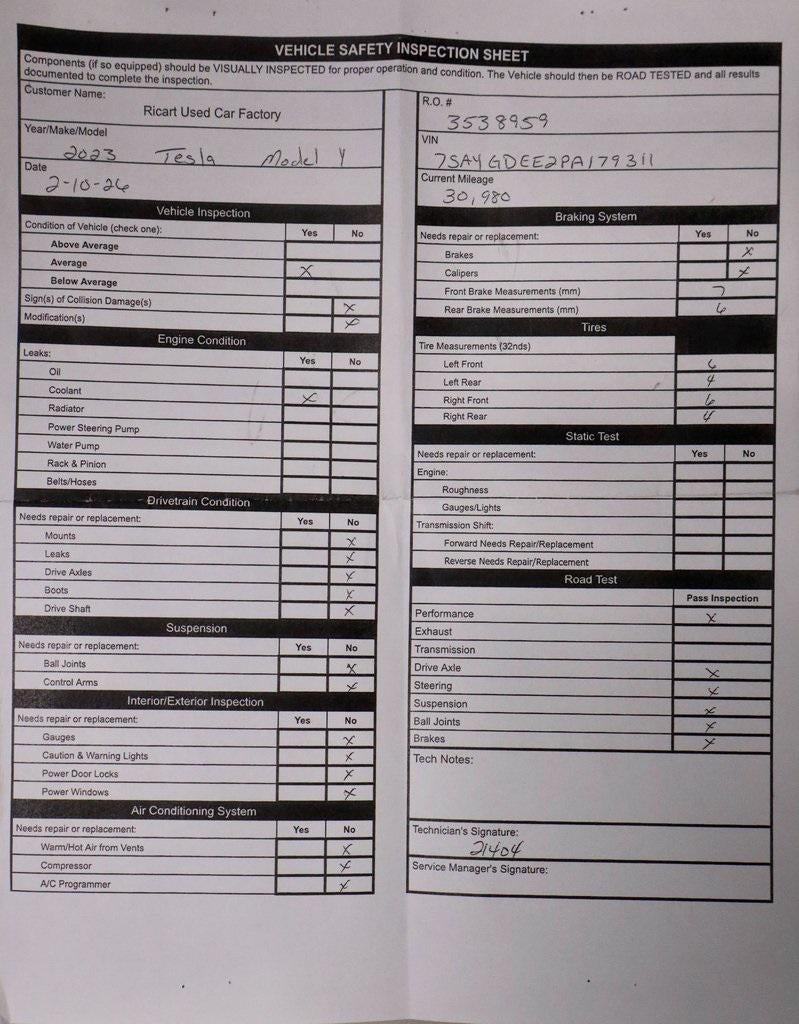 VEHICLE SAFETY INSPECTION SHEET
Components (if so equipped) should be VISUALLY INSPECTED for proper operation and condition. The Vehicle should then be ROAD TESTED and all results
documented to complete the inspection.
Customer Name:
Ricart Used Car Factory
Year/Make/Model
2023 Tesla Model Y
Date
2-10-26
Vehicle Inspection
Condition of Vehicle (check one): Yes No
Above Average
Average X
Below Average
Sign(s) of Collision Damage(s) X
Modification(s) X
Engine Condition
Leaks: Yes No
Oil
Coolant X
Radiator
Power Steering Pump
Water Pump
Rack & Pinion
Belts/Hoses
Drivetrain Condition
Needs repair or replacement: Yes No
Mounts X
Leaks X
Drive Axles X
Boots X
Drive Shaft X
Suspension
Needs repair or replacement: Yes No
Ball Joints X
Control Arms X
Interior/Exterior Inspection
Needs repair or replacement: Yes No
Gauges X
Caution & Warning Lights X
Power Door Locks X
Power Windows X
Air Conditioning System
Needs repair or replacement: Yes No
Warm/Hot Air from Vents X
Compressor X
A/C Programmer X
R.O. #
3538959
VIN
7SAYGDEE2PA179311
Current Mileage
30,980
Braking System
Needs repair or replacement: Yes No
Brakes X
Calipers X
Front Brake Measurements (mm) 7
Rear Brake Measurements (mm) 6
Tires
Tire Measurements (32nds)
Left Front 6
Left Rear 4
Right Front 6
Right Rear 4
Static Test
Needs repair or replacement: Yes No
Engine:
Roughness
Gauges/Lights
Transmission Shift:
Forward Needs Repair/Replacement
Reverse Needs Repair/Replacement
Road Test
Pass Inspection
Performance X
Exhaust
Transmission
Drive Axle X
Steering X
Suspension X
Ball Joints X
Brakes X
Tech Notes:
Technician's Signature:
21404
Service Manager's Signature: